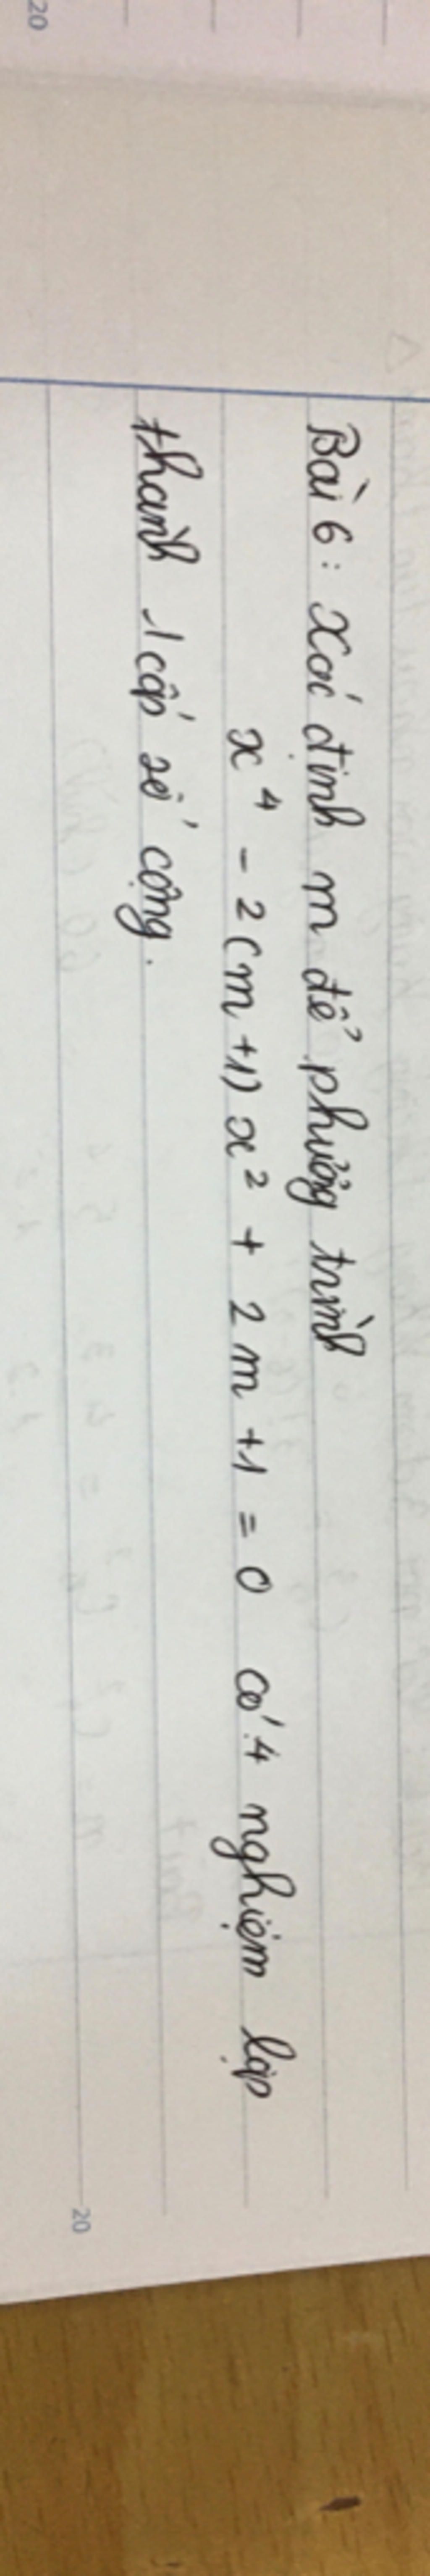 20
Bài 6: Xác định m để phương trình
x⁴ - 2(m+1)x² + 2m+1 = 0 có 4 nghiệm lập
thành 1 cấp số cộng.
20